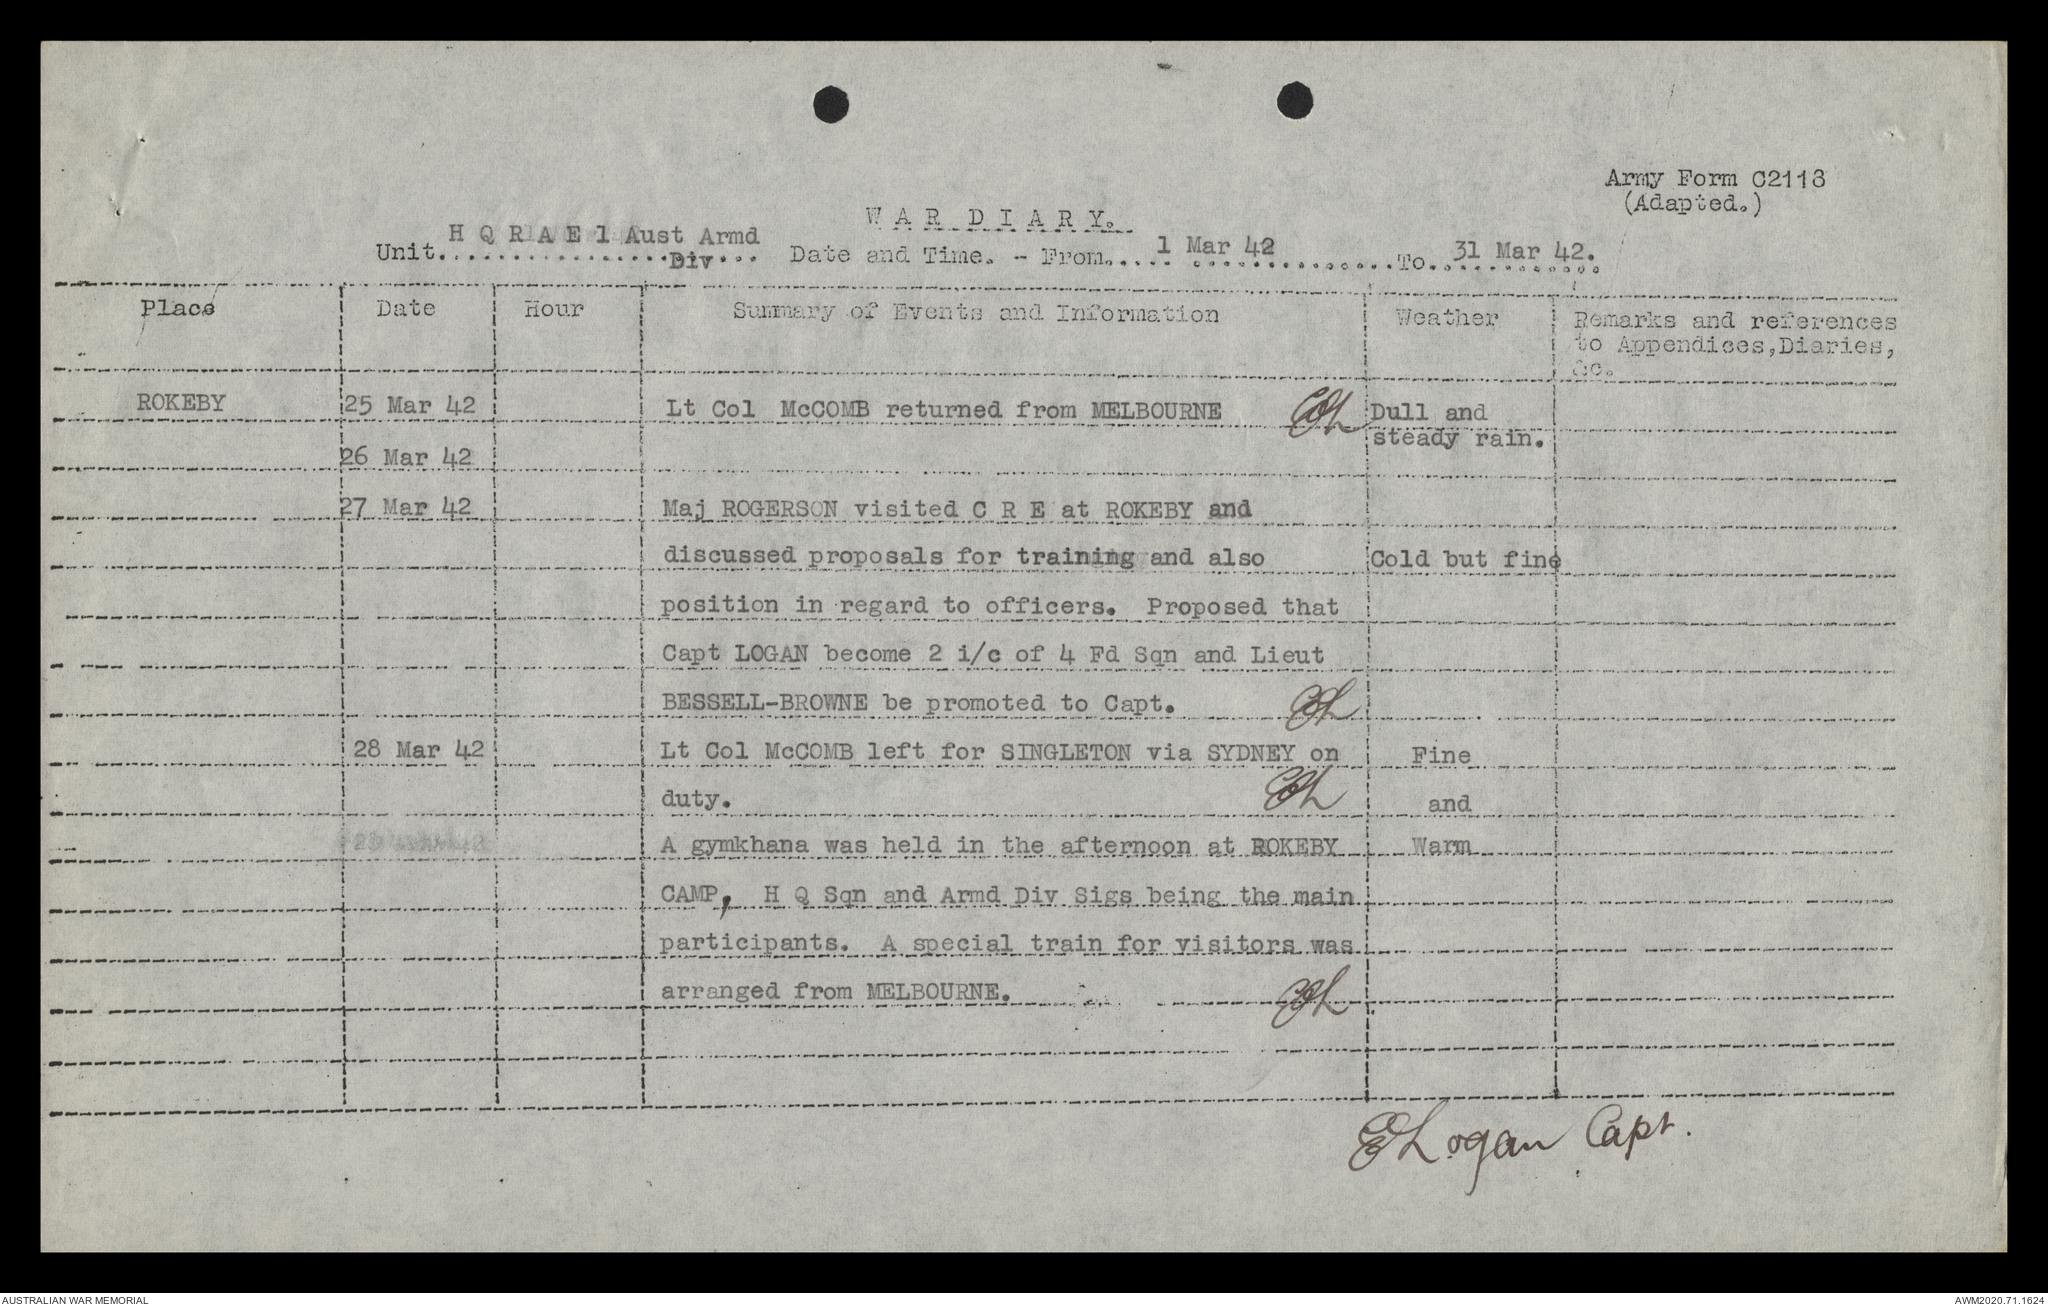 Army Form C2118
(Adapted.)
WAR DIARY.
Unit H Q R A E 1 Aust Armd Div Date and Time. - From 1 Mar 42 To 31 Mar 42.
Place Date Hour Summary of Events and Information Weather Remarks and references
to Appendices,Diaries,
&c.
ROKEBY 25 Mar 42 Lt Col McCOMB returned from MELBOURNE Dull and
steady rain.
26 Mar 42
27 Mar 42 Maj ROGERSON visited C R E at ROKEBY and
discussed proposals for training and also Cold but fine
position in regard to officers. Proposed that
Capt LOGAN become 2 i/c of 4 Fd Sqn and Lieut
BESSELL-BROWNE be promoted to Capt.
28 Mar 42 Lt Col McCOMB left for SINGLETON via SYDNEY on Fine
duty. and
A gymkhana was held in the afternoon at ROKEBY Warm
CAMP, H Q Sqn and Armd Div Sigs being the main
participants. A special train for visitors was
arranged from MELBOURNE.
Logan Capt.
AUSTRALIAN WAR MEMORIAL AWM2020.71.1624